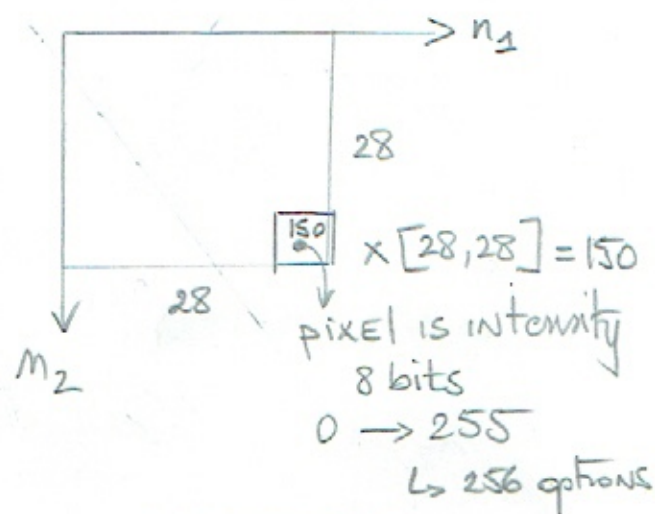 n1
28
150
x [28,28] = 150
28
pixel is intensity
n2
8 bits
0 → 255
↳ 256 options